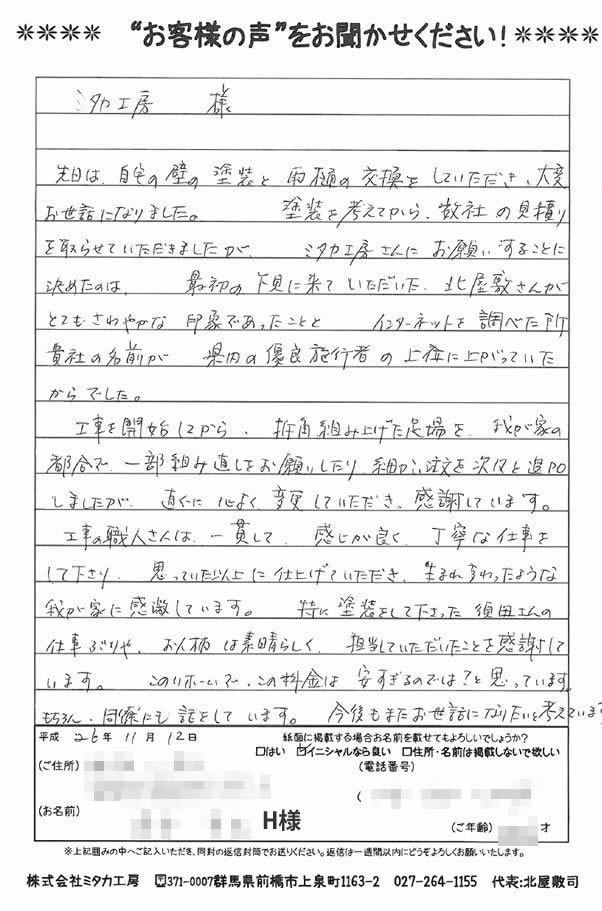 ＊＊＊＊ “お客様の声”をお聞かせください！＊＊＊＊
ミタカ工房 様
先日は、自宅の壁の塗装と雨樋の交換をしていただき、大変
お世話になりました。 塗装を考えてから、数社の見積り
を取らせていただきましたが、 ミタカ工房さんにお願いすることに
決めたのは、 最初の下見に来ていただいた、北屋敷さんが
とてもさわやかな印象であったことと インターネットを調べた所
貴社の名前が 県内の優良施行者の上位に上がっていた
からでした。
工事を開始してから、折角組み上げた足場を、我が家の
都合で、一部組み直しをお願いしたり、細かい注文を次々と追加
しましたが、 直ぐに心よく変更していただき、感謝しています。
工事の職人さんは、一貫して、 感じが良く、丁寧な仕事を
して下さり、思っていた以上に仕上げていただき、生まれ変わったような
我が家に感激しています。 特に塗装をして下さった須田さんの
仕事ぶりや、お人柄は素晴らしく、担当していただいたことを感謝して
います。 このリホームで、この料金は安すぎるのでは？と思っています。
もちろん、同僚にも話をしています。 今後もまたお世話になりたいと考えています
平成 26年 11月 12日 紙面に掲載する場合お名前を載せてもよろしいでしょうか？
□はい ☑イニシャルなら良い □住所・名前は掲載しないで欲しい
(ご住所) (電話番号)
(
(お名前) H様 (ご年齢) 才
※上記囲みの中へご記入いただき、同封の返信封筒でお送りください。返信は一週間以内にどうぞよろしくお願いいたします。
株式会社ミタカ工房 〒371-0007群馬県前橋市上泉町1163-2 027-264-1155 代表:北屋敷司